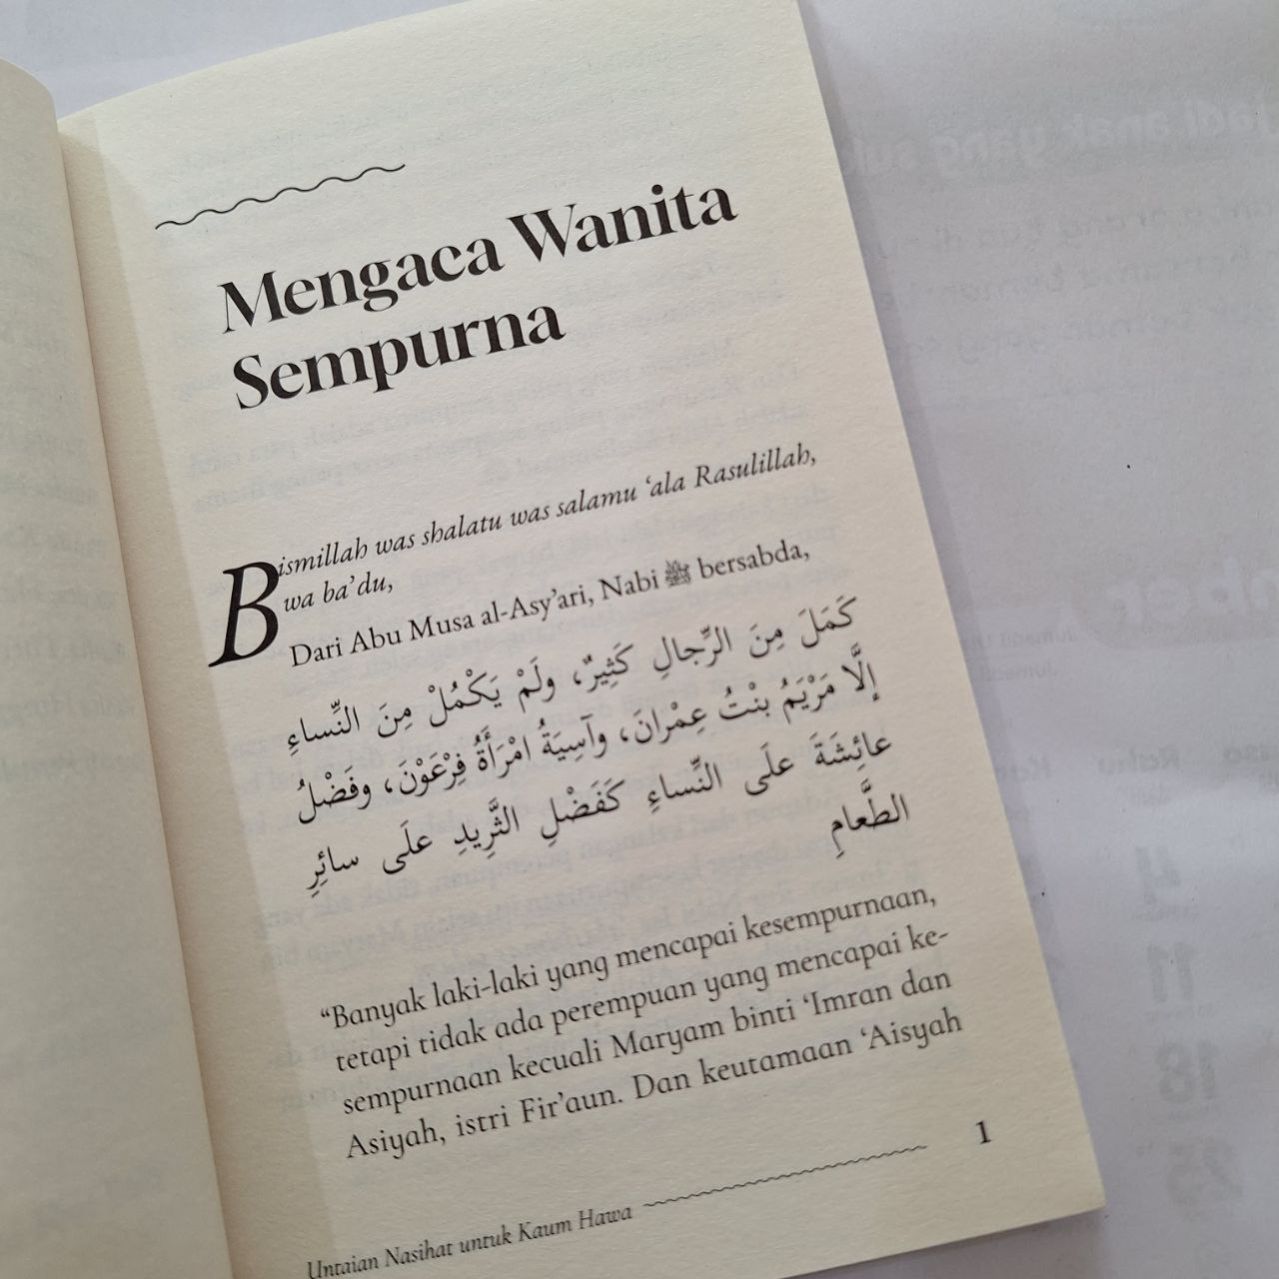 Mengaca Wanita
Sempurna
Bismillah was shalatu was salamu ‘ala Rasulillah,
wa ba’du,
Dari Abu Musa al-Asy’ari, Nabi ﷺ bersabda,
كَمَلَ مِنَ الرِّجالِ كَثِيرٌ، ولَمْ يَكْمُلْ مِنَ النِّساءِ
إلَّا مَرْيَمُ بنْتُ عِمْرانَ، وآسِيَةُ امْرَأَةُ فِرْعَوْنَ، وفَضْلُ
عائِشَةَ علَى النِّساءِ كَفَضْلِ الثَّرِيدِ علَى سائِرِ
الطَّعامِ
“Banyak laki-laki yang mencapai kesempurnaan,
tetapi tidak ada perempuan yang mencapai ke-
sempurnaan kecuali Maryam binti ‘Imran dan
Asiyah, istri Fir’aun. Dan keutamaan ‘Aisyah
Untaian Nasihat untuk Kaum Hawa
1